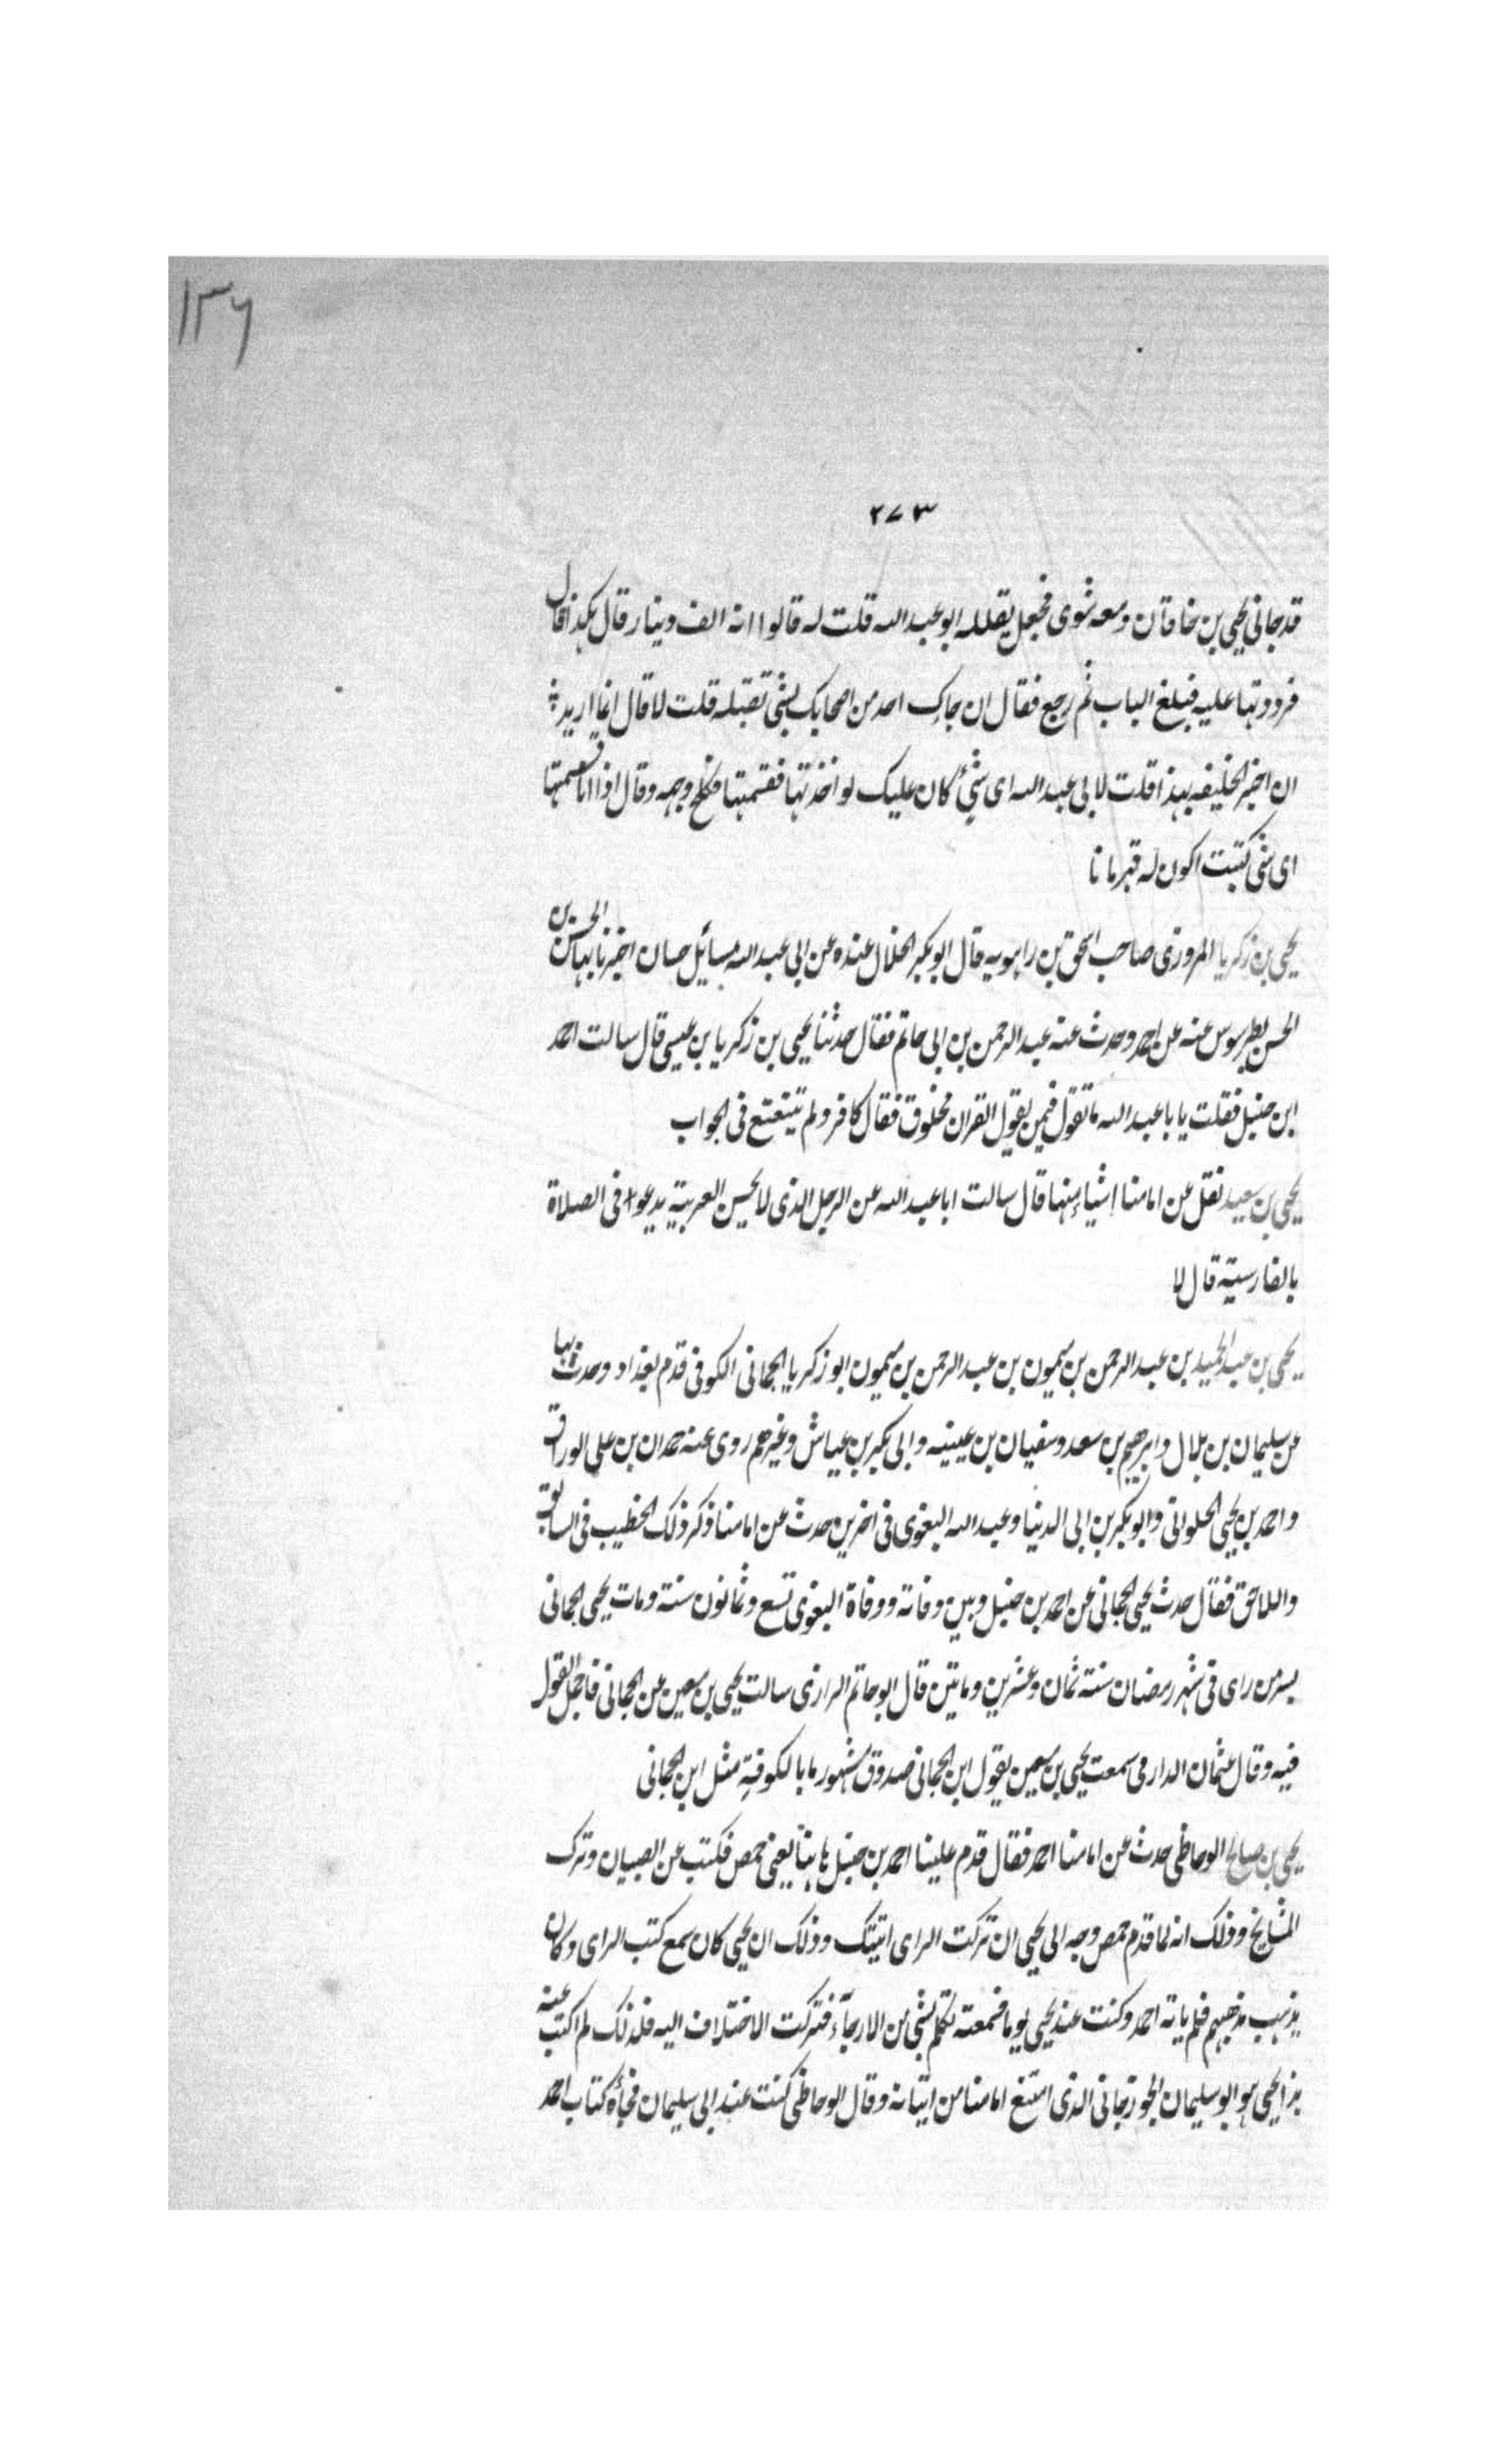 ١٣٦
٢٧٣
قد جانى يحيى بن خاقان ومعه شوى فجعل يقلله ابو عبد الله قلت له قالوا انه الف دينار قال هكذا قال
فرددتها عليه فبلغ الباب ثم رجع فقال ان جاك احد من اصحابك بشئ تقبله قلت لا قال انما اريد
ان اخبر الخليفه بهذا قلت لابى عبد الله اى شئ كان عليك لو اخذتها فقسمتها فكلح وجهه وقال اذا انا قسمتها
اى شئ كنت اكون له قهرمانا
يحيى بن زكريا المروزى صاحب اسحق بن راهويه قال ابو بكر الخلال عنده عن ابى عبد الله مسائل حسان اخبرنا بها الحسين بن
الحسن بطرسوس عنه عن احمد وحدث عنه عبد الرحمن بن ابى حاتم فقال حدثنا يحيى بن زكريا بن عيسى قال سالت احمد
ابن حنبل فقلت يا با عبد الله ما تقول فيمن يقول القران مخلوق فقال كافر ولم يتتعتع فى الجواب
يحيى بن سعيد نقل عن امامنا اشياء منها قال سالت ابا عبد الله عن الرجل الذى لا يحسن العربية يدعوا فى الصلاة
بالفارسية قال لا
يحيى بن عبد الحميد بن عبد الرحمن بن ميمون بن عبد الرحمن بن ميمون ابو زكريا الحمانى الكوفى قدم بغداد وحدث بها
عن سليمان بن بلال وابرهيم بن سعد وسفيان بن عيينه وابى بكر بن عياش وغيرهم روى عنه حمدان بن على الوراق
واحمد بن يحيى الحلوانى وابو بكر بن ابى الدنيا وعبد الله البغوى فى اخرين حدث عن امامنا ذكر ذلك الخطيب فى السابق
واللاحق فقال حدث يحيى الحمانى عن احمد بن حنبل وبين وفاته ووفاة البغوى تسع وثمانون سنة ومات يحيى الحمانى
بسرمن راى فى شهر رمضان سنة ثمان وعشرين وماتين قال ابو حاتم الرازى سالت يحيى بن معين عن الحمانى فاجمل القول
فيه وقال عثمان الدارمى سمعت يحيى بن معين يقول ابن الحمانى صدوق مشهور ما بالكوفة مثل ابن الحمانى
يحيى بن صالح الوحاظى حدث عن امامنا احمد فقال قدم علينا احمد بن حنبل هاهنا يعنى حمص فكتب عن الصبيان وترك
المشايخ وذلك انه لما قدم حمص وجه الى يحيى ان تركت الراى اتيتك وذلك ان يحيى كان سمع كتب الراى وكان
يذهب مذهبهم فلم ياته احمد وكنت عند يحيى يوما فسمعته تكلم بشئ من الارجاء فتركت الاختلاف اليه فلذلك لم اكتب عنه
هذا يحيى هو ابو سليمان الجوزجانى الذى امتنع امامنا من اتيانه وقال الوحاظى كنت عند ابى سليمان فجاءه كتاب احمد